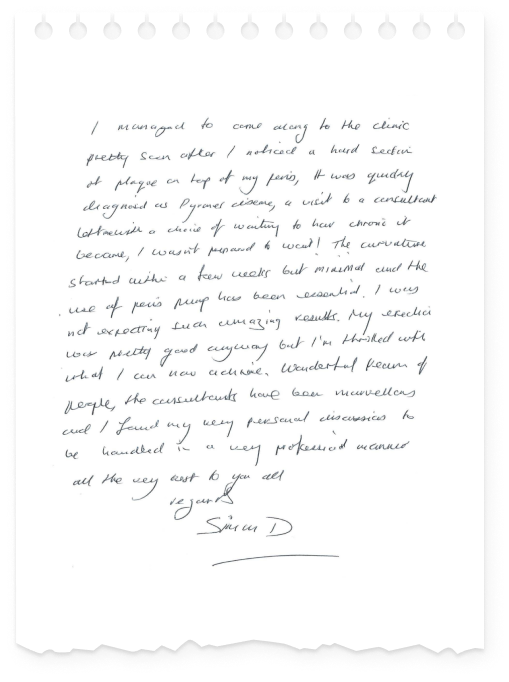 I managed to come along to the clinic
pretty soon after I noticed a hard section
of plaque on top of my penis, It was quickly
diagnosed as Pyrones disease, a visit to a consultant
left me with a choice of waiting to how chronic it
became, I wasn't prepared to wait! The curvature
started within a few weeks but minimal and the
use of penis pump has been essential. I was
not expecting such amazing results. My erection
was pretty good anyway but I'm thrilled with
what I can now achieve. Wonderful team of
people, the consultants have been marvellous
and I found my very personal discussions to
be handled in a very professional manner
all the very best to you all
regards
Simon D